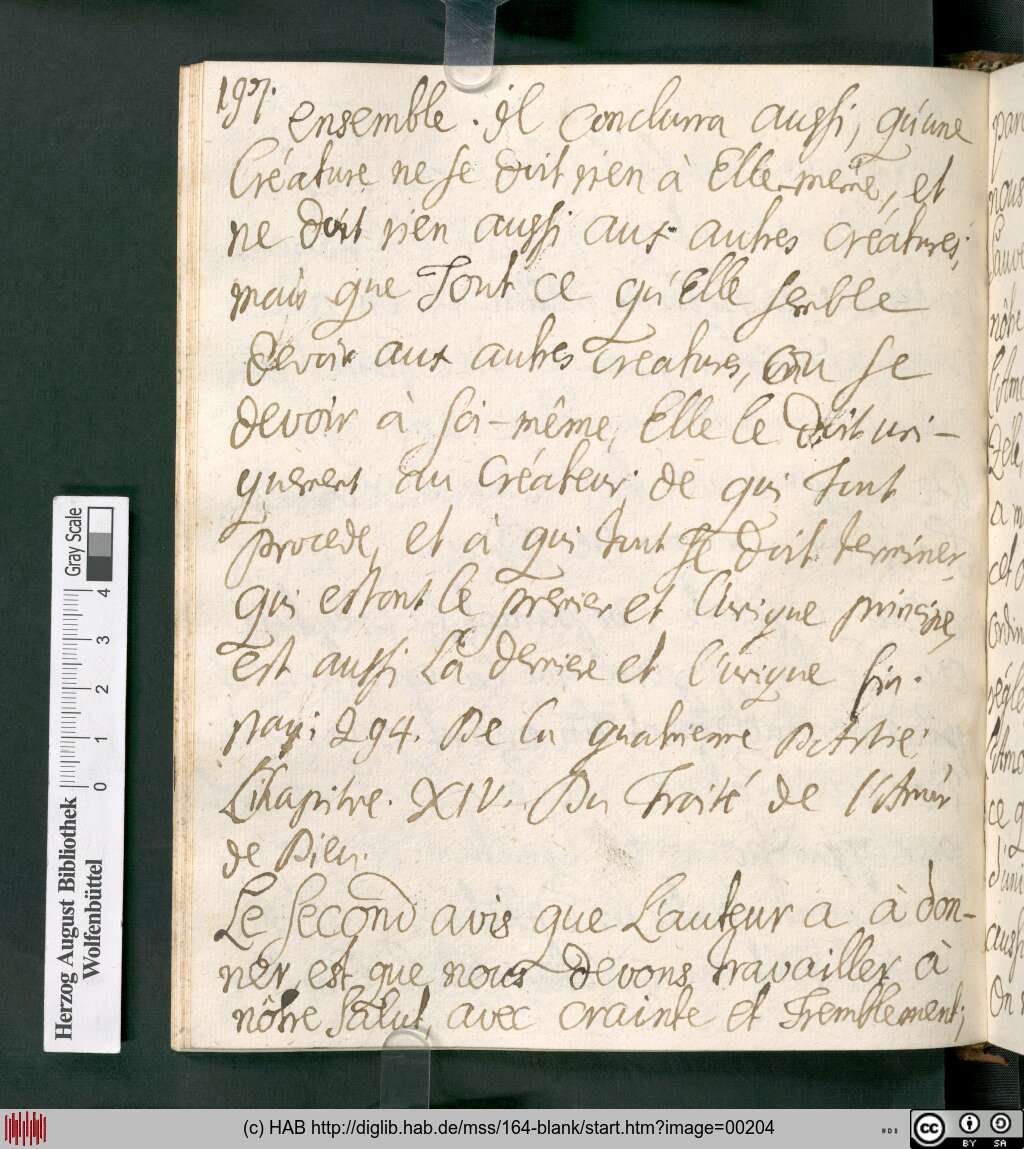 197.
ensemble. il conclurra aussi, qu'une
Créature ne se doit rien à Elle-même, et
ne doit rien aussi aux autres créatures;
mais que Tout ce qu'Elle semble
devoir aux autres créatures, ou se
devoir à soi-même, Elle le doit uni-
quement au Créateur; de qui Tout
procede, et à qui tout se doit terminer,
qui estant le premier et l'unique principe,
est aussi la derniere et l'unique fin.
pag: 294. De la quatrieme Partie:
Chapitre. XIV. Du Traité de l'Amour
de Dieu.
Le Second avis que L'auteur a à don-
ner, est que nous devons travailler à
nôtre Salut, avec crainte et Tremblement;
par
nous
sauve
nôtre
l'Amo
Zelle
a m
cet
ordin
régle
l'Amo
ce q
d'uni
aussi
On
Gray Scale
4
3
2
1
0
Herzog August Bibliothek
Wolfenbüttel
(c) HAB http://diglib.hab.de/mss/164-blank/start.htm?image=00204
cc BY SA